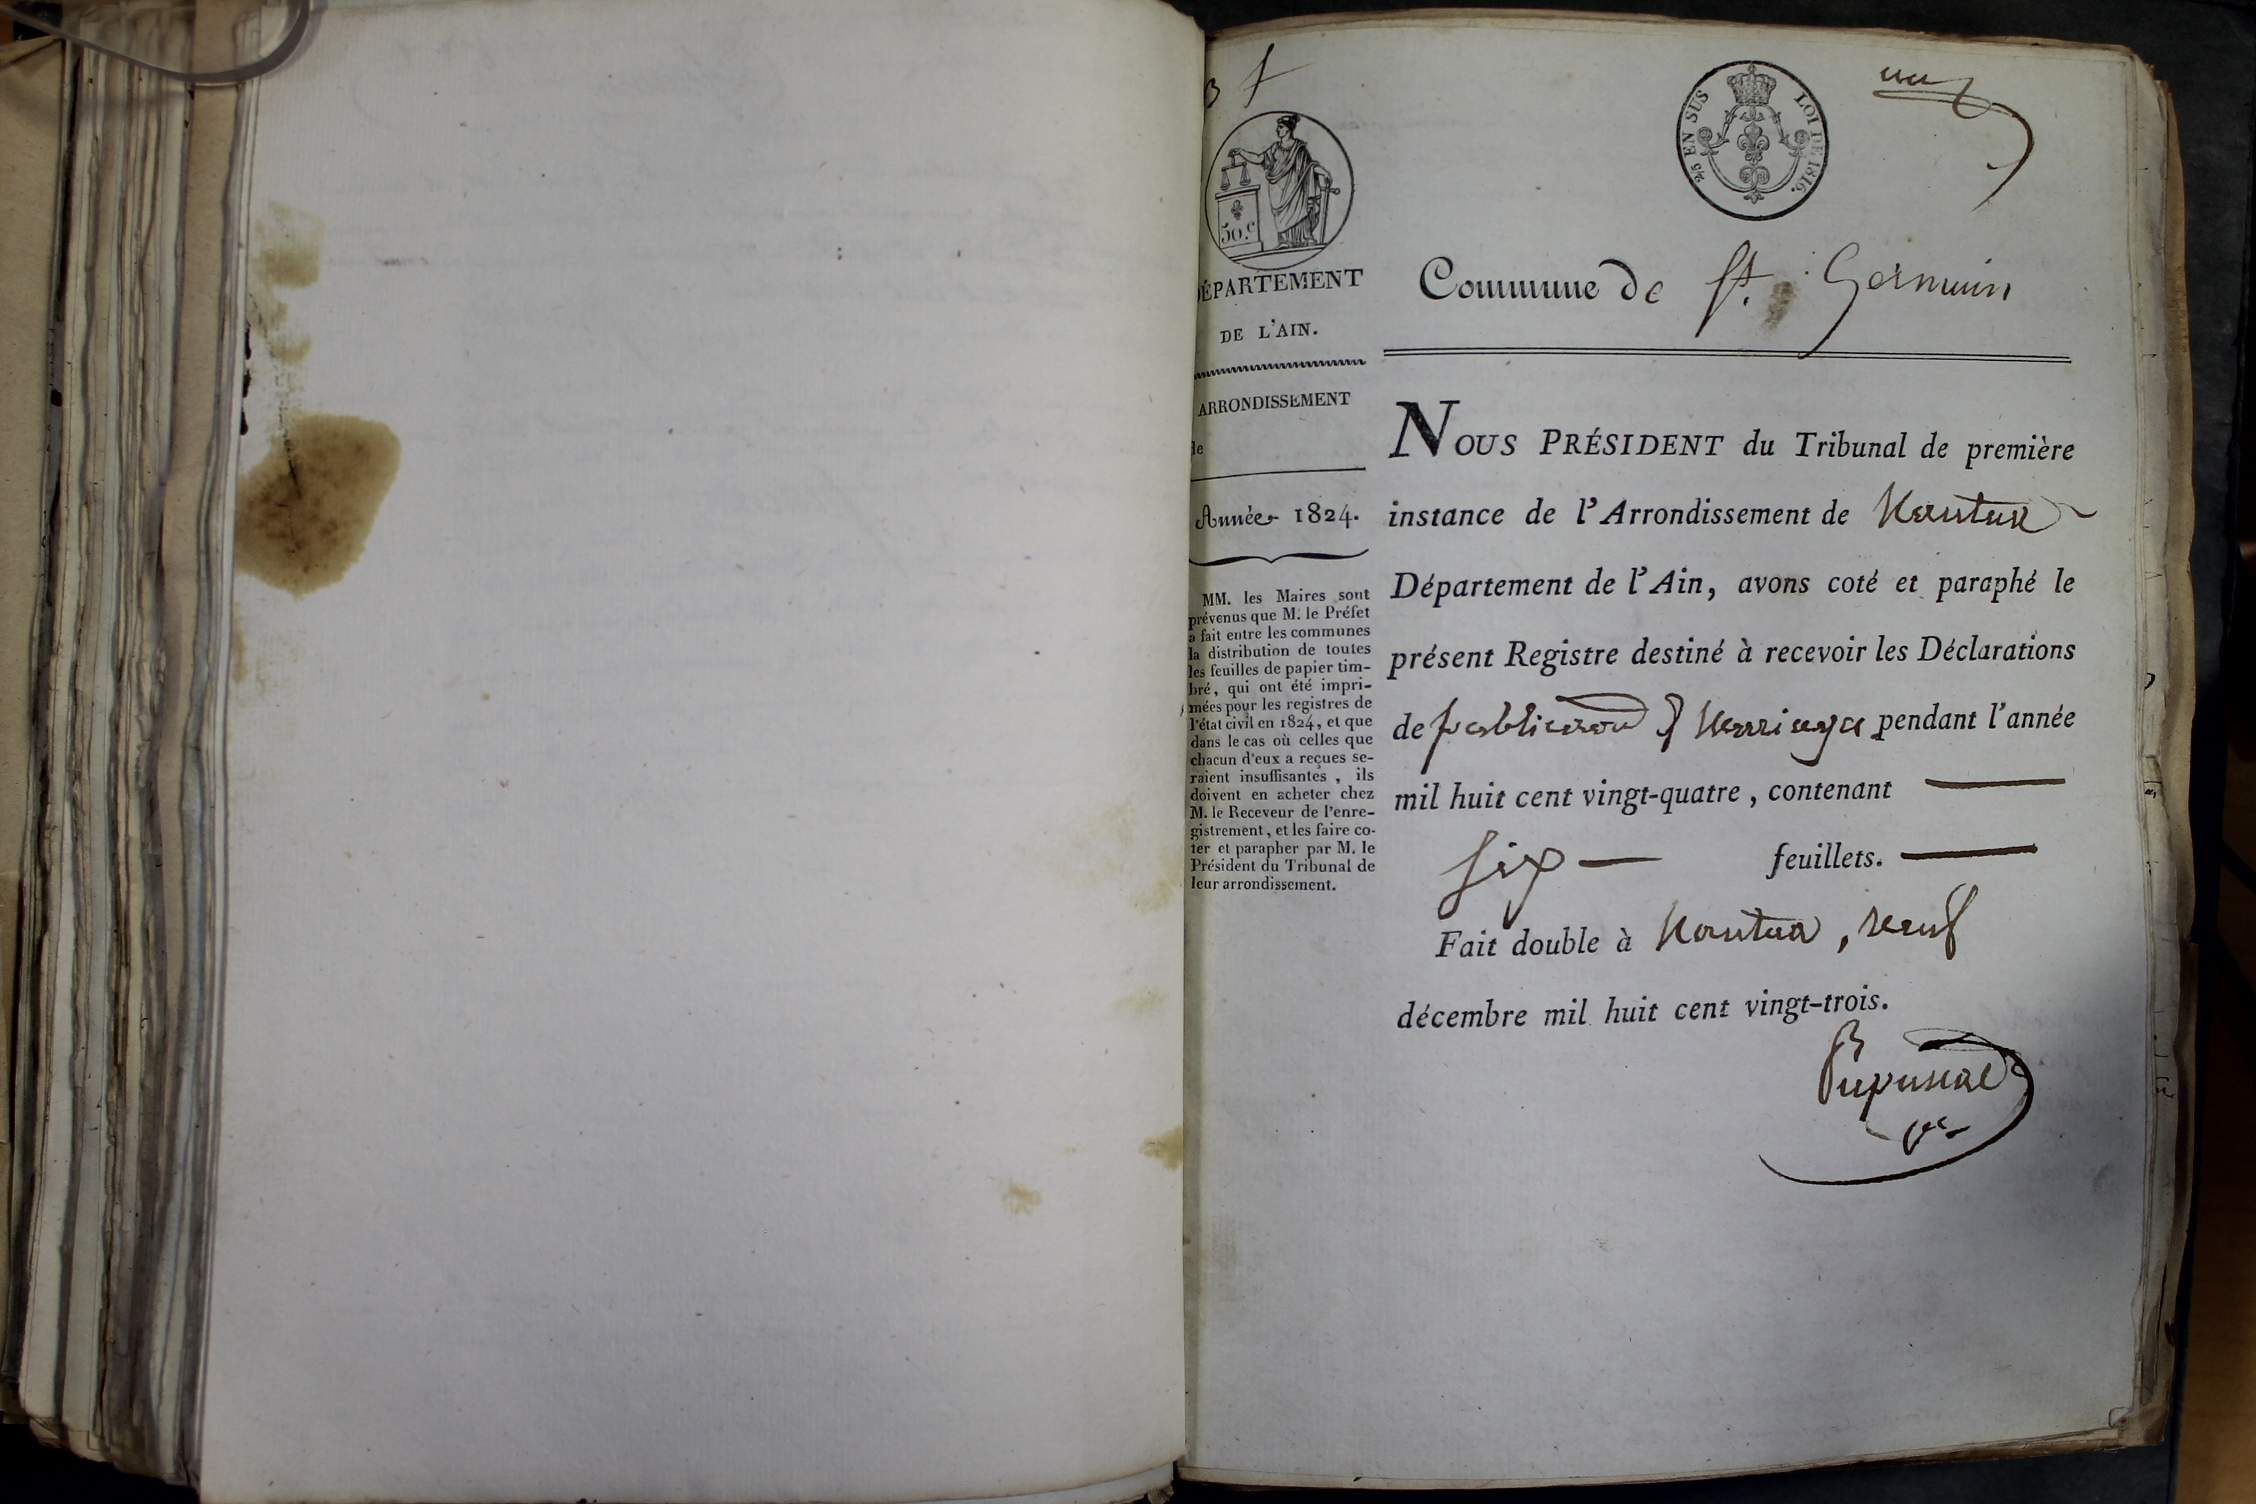 un
2/5 EN SUS LOI DE 1816.
50.c
DÉPARTEMENT
DE L'AIN.
ARRONDISSEMENT
de
Année 1824.
MM. les Maires sont
prévenus que M. le Préfet
a fait entre les communes
la distribution de toutes
les feuilles de papier tim-
bré, qui ont été impri-
mées pour les registres de
l'état civil en 1824, et que
dans le cas où celles que
chacun d'eux a reçues se-
raient insuffisantes, ils
doivent en acheter chez
M. le Receveur de l'enre-
gistrement, et les faire co-
ter et parapher par M. le
Président du Tribunal de
leur arrondissement.
Commune de St. Germain
NOUS PRÉSIDENT du Tribunal de première
instance de l'Arrondissement de Nantua
Département de l'Ain, avons coté et paraphé le
présent Registre destiné à recevoir les Déclarations
de publication de Mariages pendant l'année
mil huit cent vingt-quatre, contenant
six feuillets.
Fait double à Nantua, neuf
décembre mil huit cent vingt-trois.